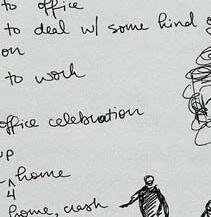 to office
to deal w/ some kind
on
to work
office celebration
up
home
4
home, crash